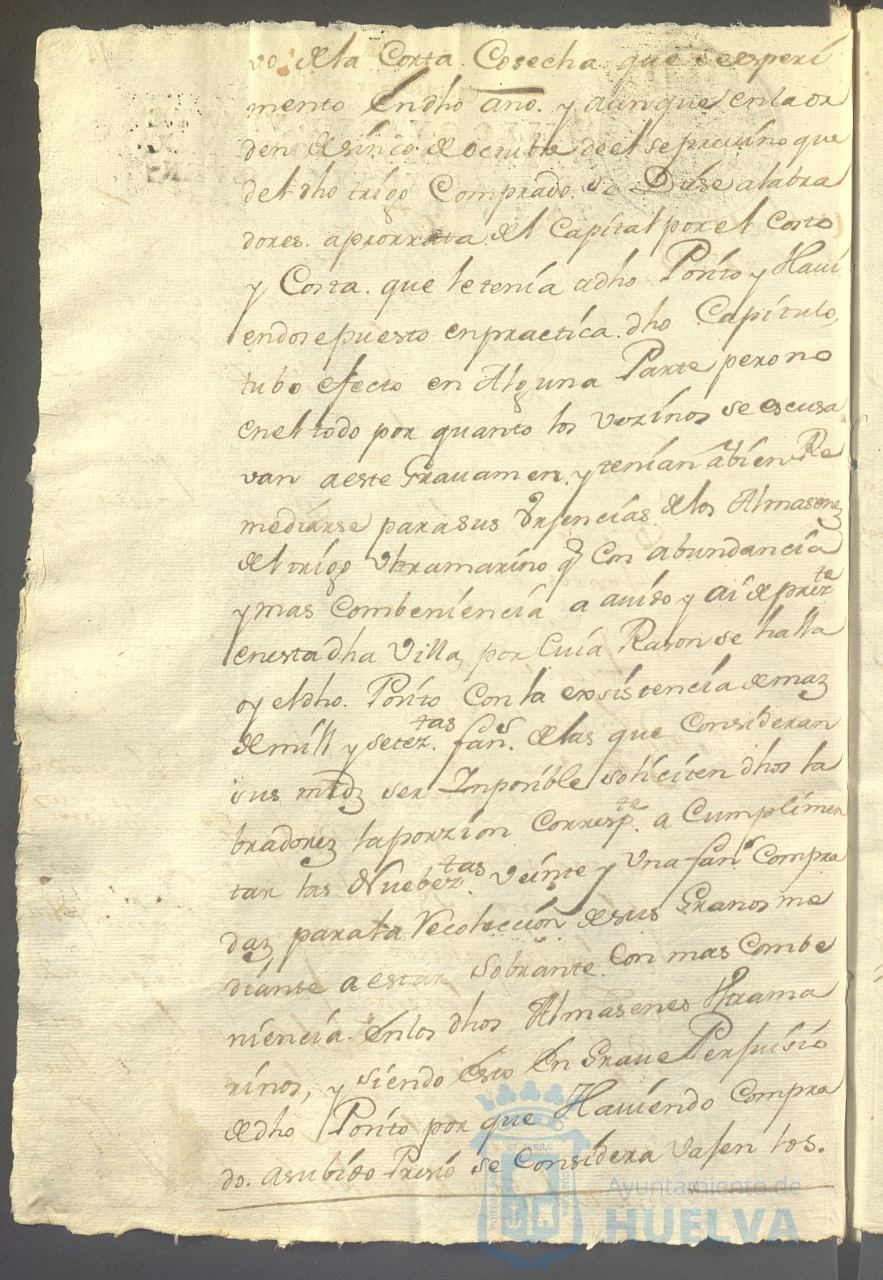 vo. de la Corta Cosecha que se esperi
mento en dho año. y aunque en la or
den de sinco de octubre de el se previno que
del dho trigo Comprado. se Diese a labra
dores. aprorrata del Capital por el Costo
y Costa. que le tenía a dho Posito y Havi
endose puesto en practica. dho Capítulo,
tubo efecto en Alguna Parte pero no
en el todo por quanto los vezinos se escusa
van a este Gravamen. y tenían a bien Re
mediarse para sus Vrsencias. de los Almasenes
del trigo Vltramarino q̃ Con abundancía
y mas Combeniencia a auido y ai de preste
en esta dha Villa, por Cuía Rason se halla
oy el dho. Posito Con la exsistencía de mas
de mill y setez.tas fan.s de las que Consideran
sus mrdz ser Inposible soliciten dhos la
bradorez la porzion Corresp.te a Cumplimen
tar las Nuebez.tas veinte y Una fan.s Compra
daz, para la recoleccion de sus Granos me
diante a estar Sobrante Con mas Combe
niencía en los dhos Almasenes Vltrama
rinos, y siendo esto En Grave Persuisio
de dho Posito por que Haviendo Compra
do. a subido Presio se Considera vasen los.
Ayuntamiento de
HUELVA